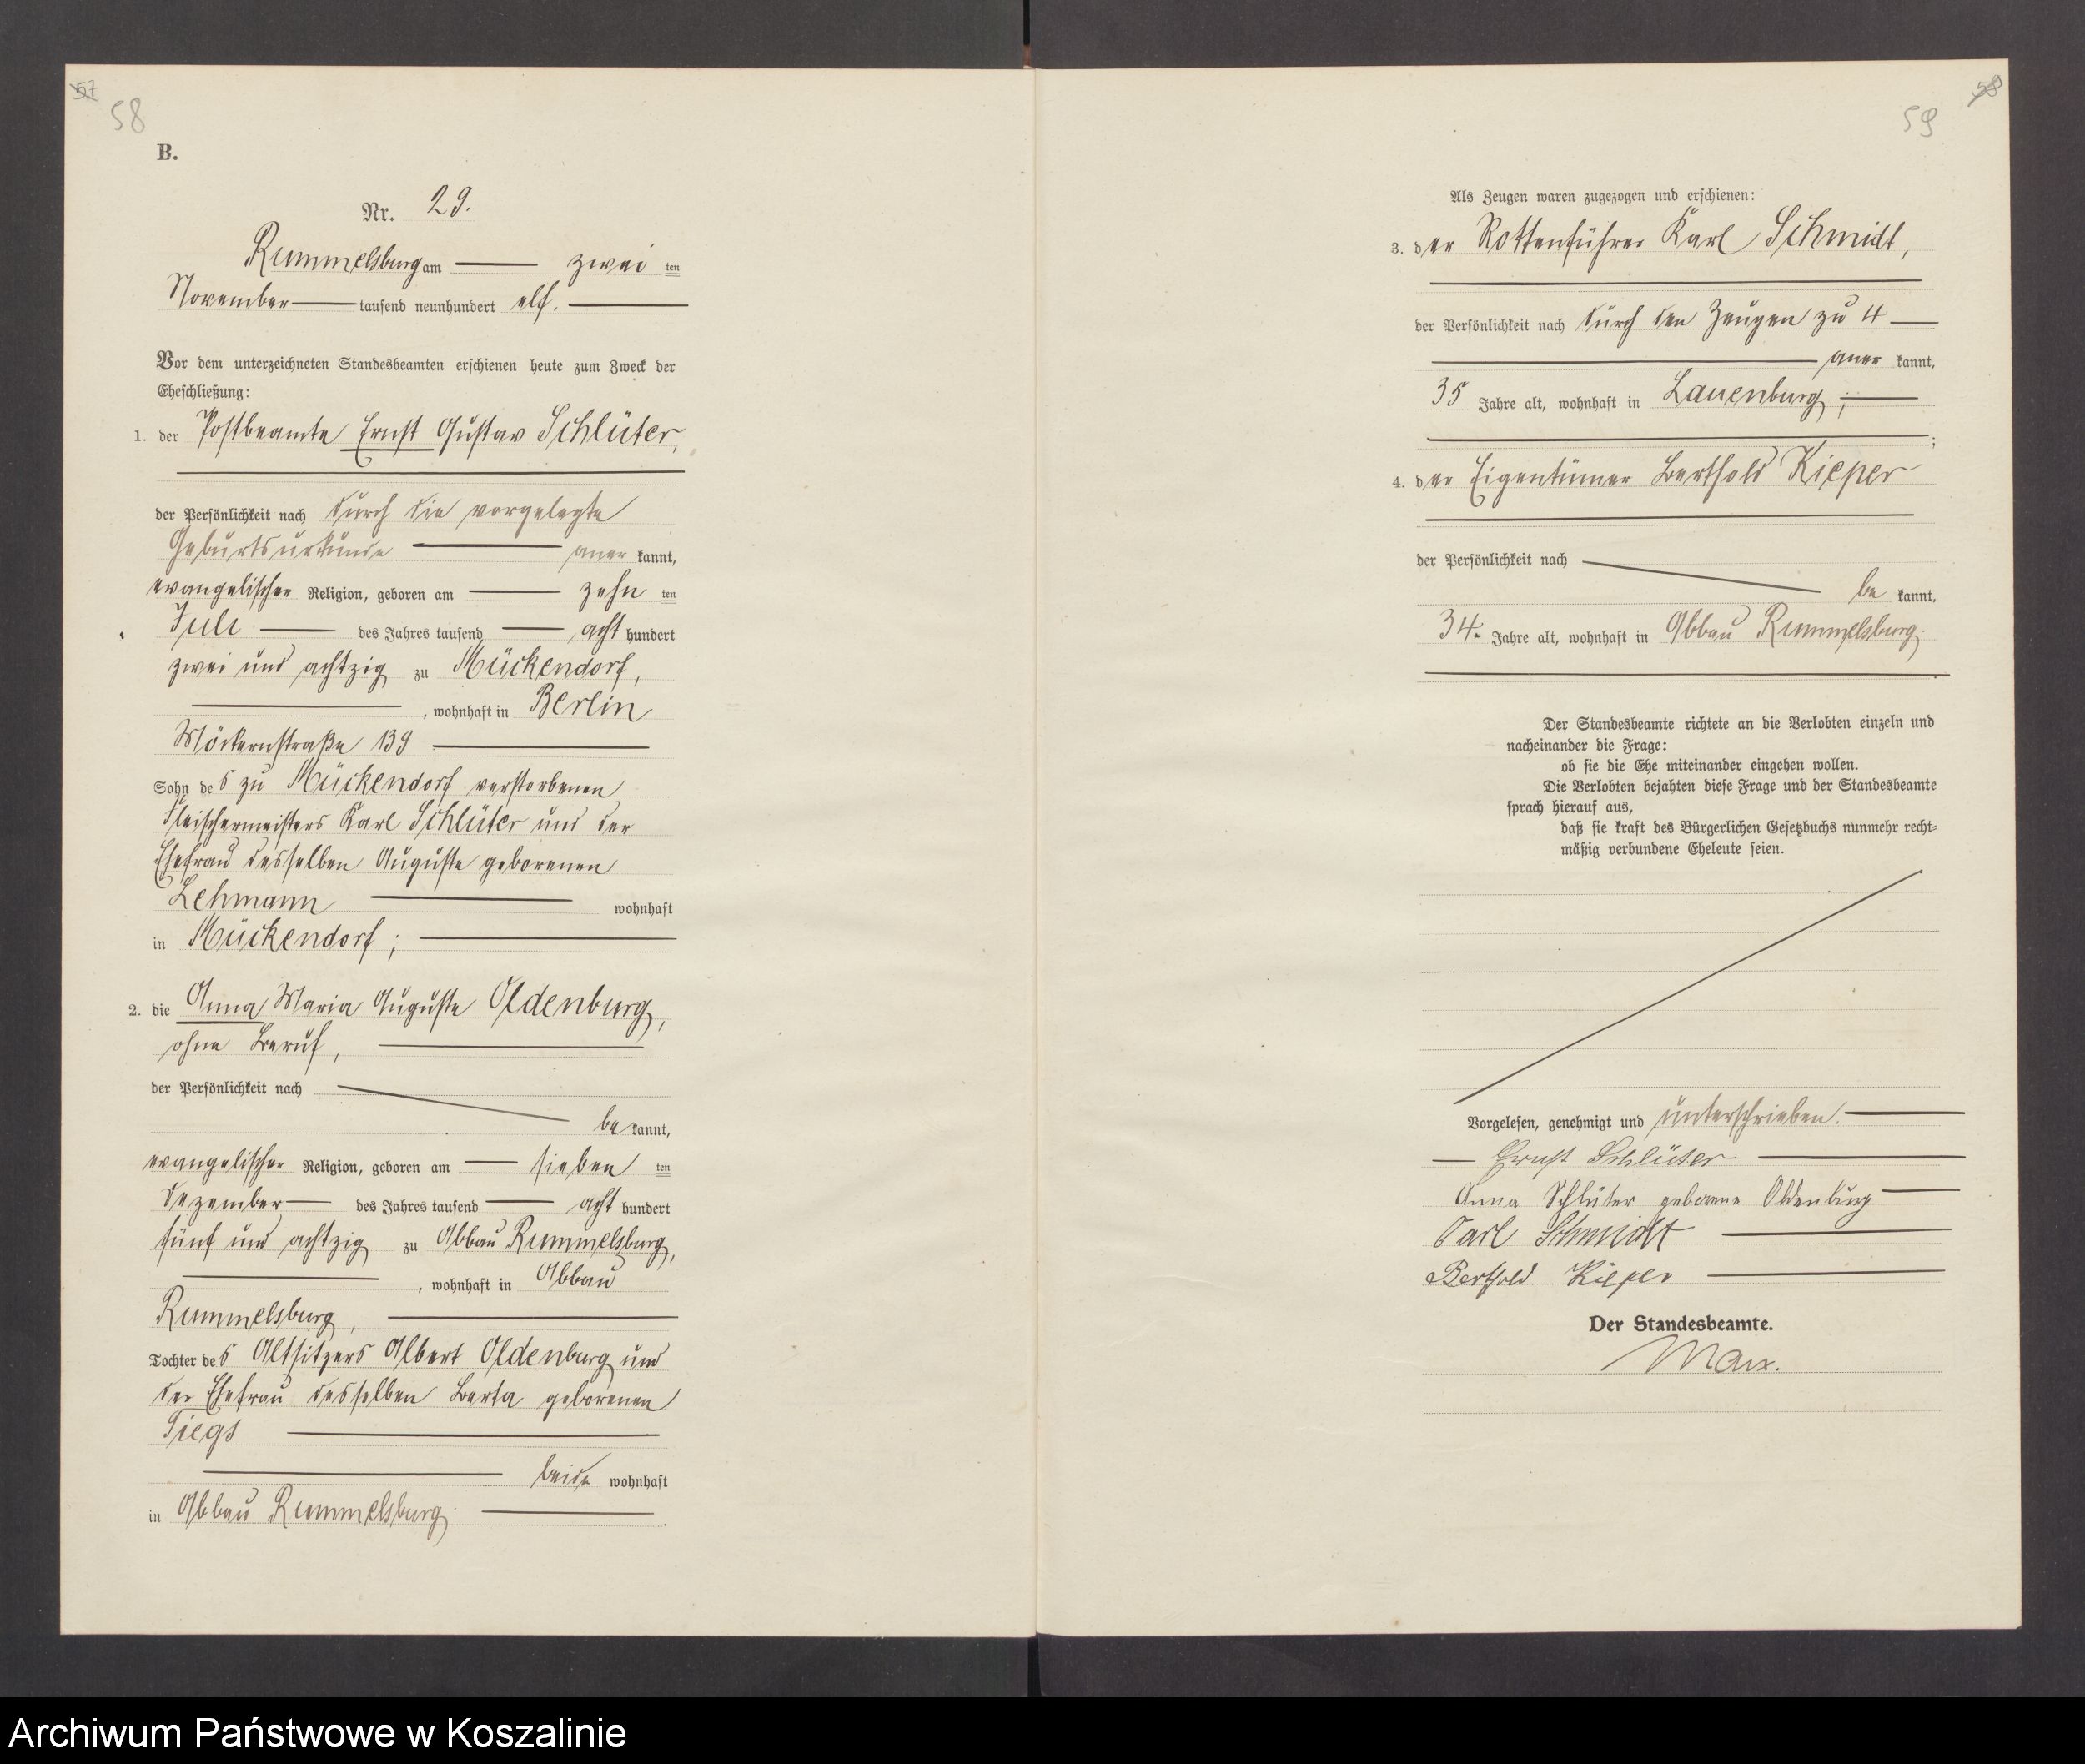 57
58
B.
Nr. 29.
Rummelsburg am zwei ten
November tausend neunhundert elf.
Vor dem unterzeichneten Standesbeamten erschienen heute zum Zweck der
Eheschließung:
1. der Postbeamte Ernst Gustav Schlüter,
der Persönlichkeit nach durch die vorgelegte
Geburtsurkunde aner kannt,
evangelischer Religion, geboren am zehn ten
Juli des Jahres tausend acht hundert
zwei und achtzig zu Mückendorf,
, wohnhaft in Berlin
Möckernstraße 139
Sohn des zu Mückendorf verstorbenen
Fleischermeisters Karl Schlüter und der
Ehefrau desselben Auguste geborenen
Lehmann wohnhaft
in Mückendorf;
2. die Anna Maria Auguste Oldenburg,
ohne Beruf,
der Persönlichkeit nach
be kannt,
evangelischer Religion, geboren am sieben ten
Dezember des Jahres tausend acht hundert
fünf und achtzig zu Abbau Rummelsburg,
, wohnhaft in Abbau
Rummelsburg,
Tochter des Altsitzers Albert Oldenburg und
der Ehefrau desselben Berta geborenen
Tiegs
beide wohnhaft
in Abbau Rummelsburg.
58
59
Als Zeugen waren zugezogen und erschienen:
3. der Rottenführer Karl Schmidt,
der Persönlichkeit nach durch den Zeugen zu 4
aner kannt,
35 Jahre alt, wohnhaft in Lauenburg;
;
4. der Eigentümer Berthold Kieper
der Persönlichkeit nach
be kannt,
34 Jahre alt, wohnhaft in Abbau Rummelsburg.
Der Standesbeamte richtete an die Verlobten einzeln und
nacheinander die Frage:
ob sie die Ehe miteinander eingehen wollen.
Die Verlobten bejahten diese Frage und der Standesbeamte
sprach hierauf aus,
daß sie kraft des Bürgerlichen Gesetzbuchs nunmehr recht-
mäßig verbundene Eheleute seien.
Vorgelesen, genehmigt und unterschrieben.
Ernst Schlüter
Anna Schlüter geborene Oldenburg
Carl Schmidt
Berthold Kieper
Der Standesbeamte.
Marx.
Archiwum Państwowe w Koszalinie